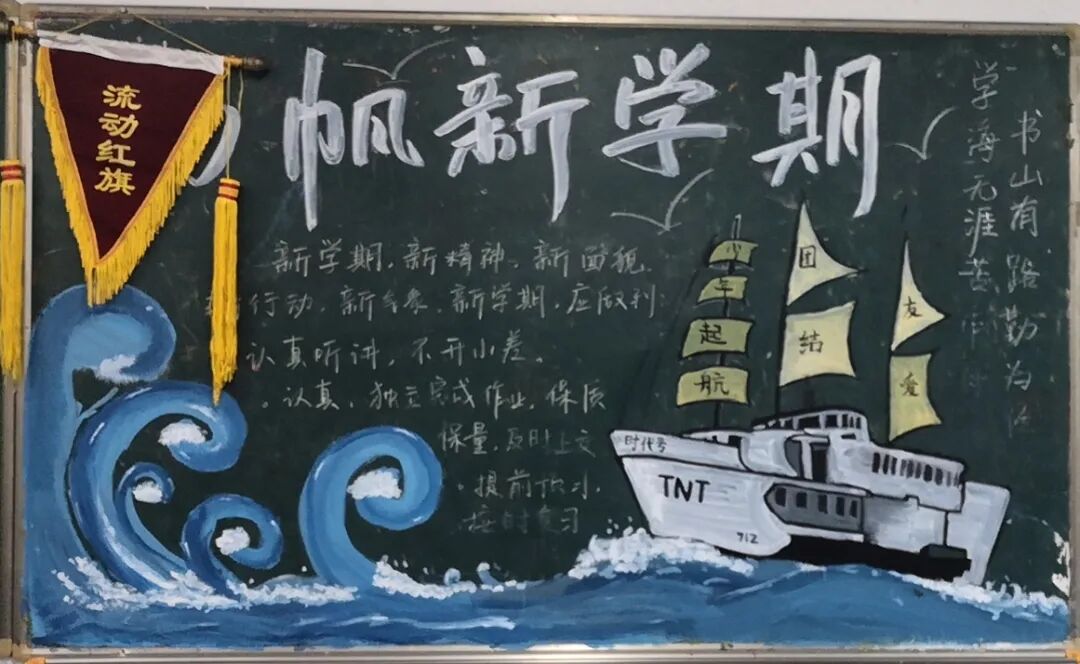 流动红旗
帆新学期
新学期、新精神、新面貌
行动、新气象、新学期,应做到:
认真听讲,不开小差。
认真、独立完成作业,保质
保量,及时上交
提前预习,
按时复习
书山有路勤为径
学海无涯苦作舟
心
起
航
团
结
友
爱
时代号
TNT
712